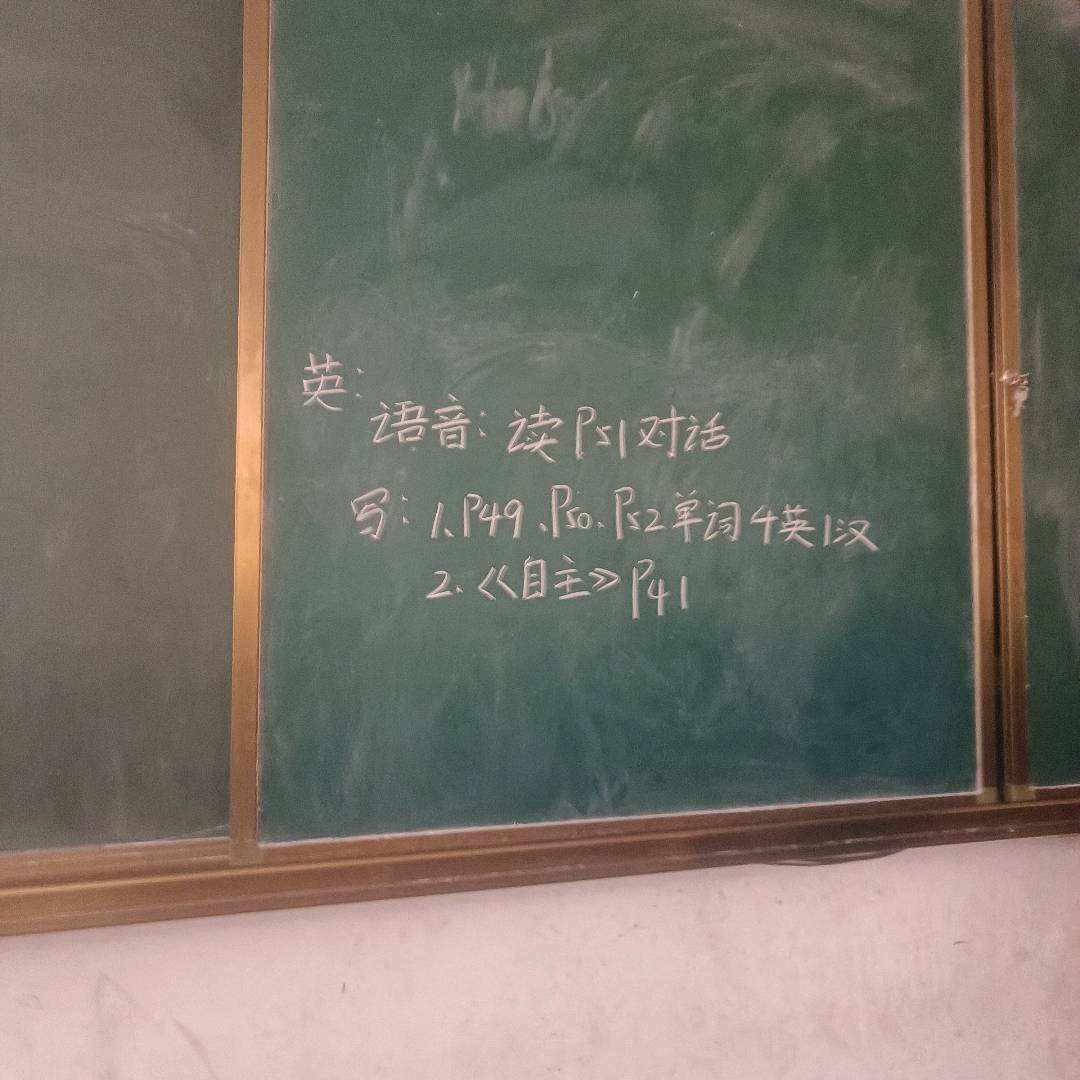 英:
语音: 读P51对话
写: 1、P49、P50、P52单词4英1汉
2.《自主》P41